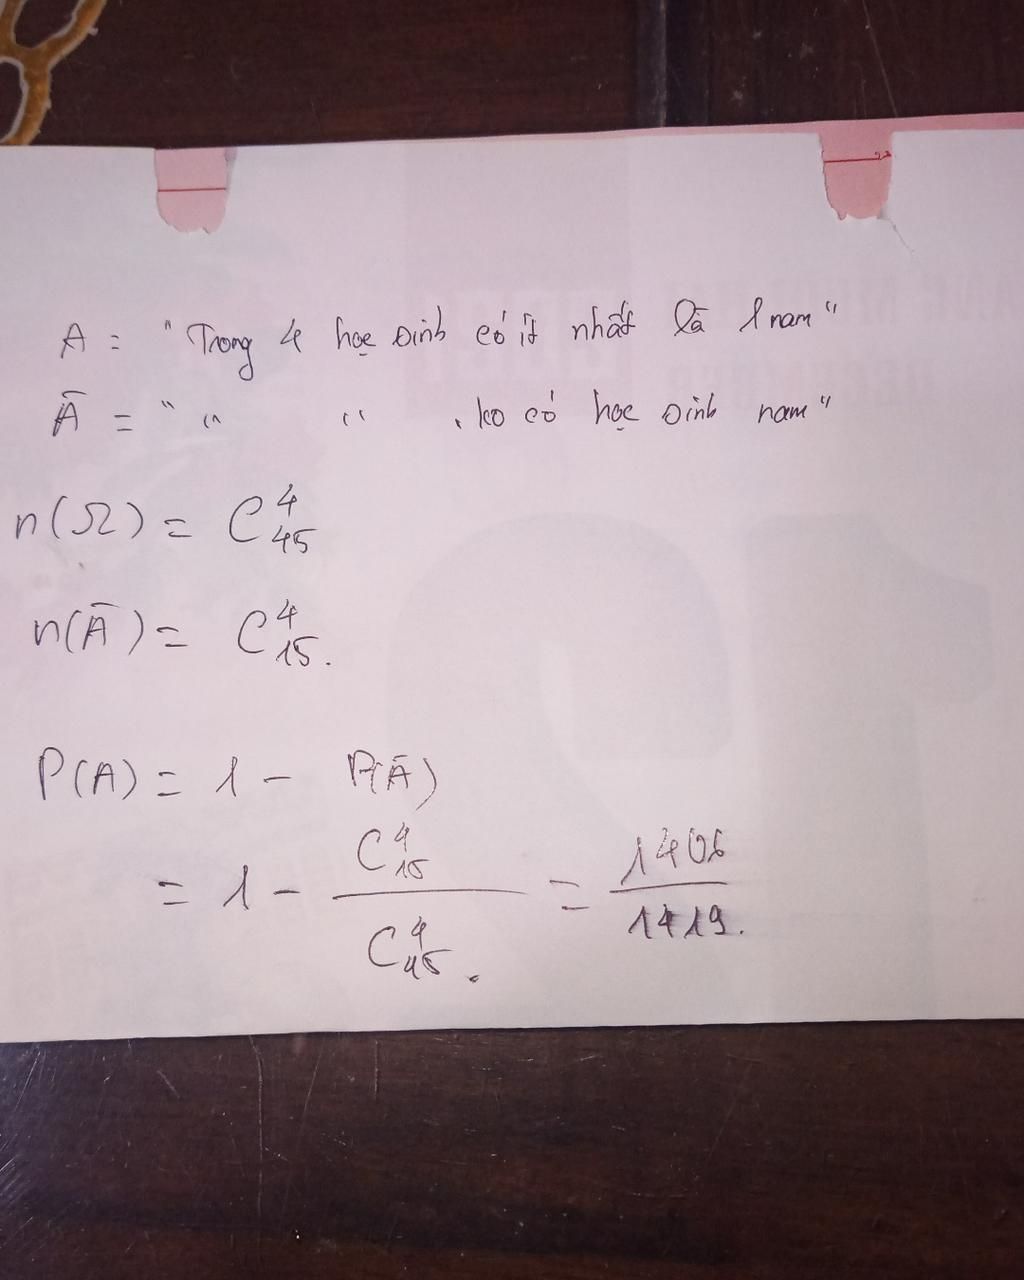 A = "Trong 4 học sinh có ít nhất là 1 nam"
Ā = " " " ko có học sinh nam"
n(Ω) = C⁴₄₅
n(Ā) = C⁴₁₅.
P(A) = 1 - P(Ā)
= 1 - C⁴₁₅ / C⁴₄₅ = 1406 / 1419.